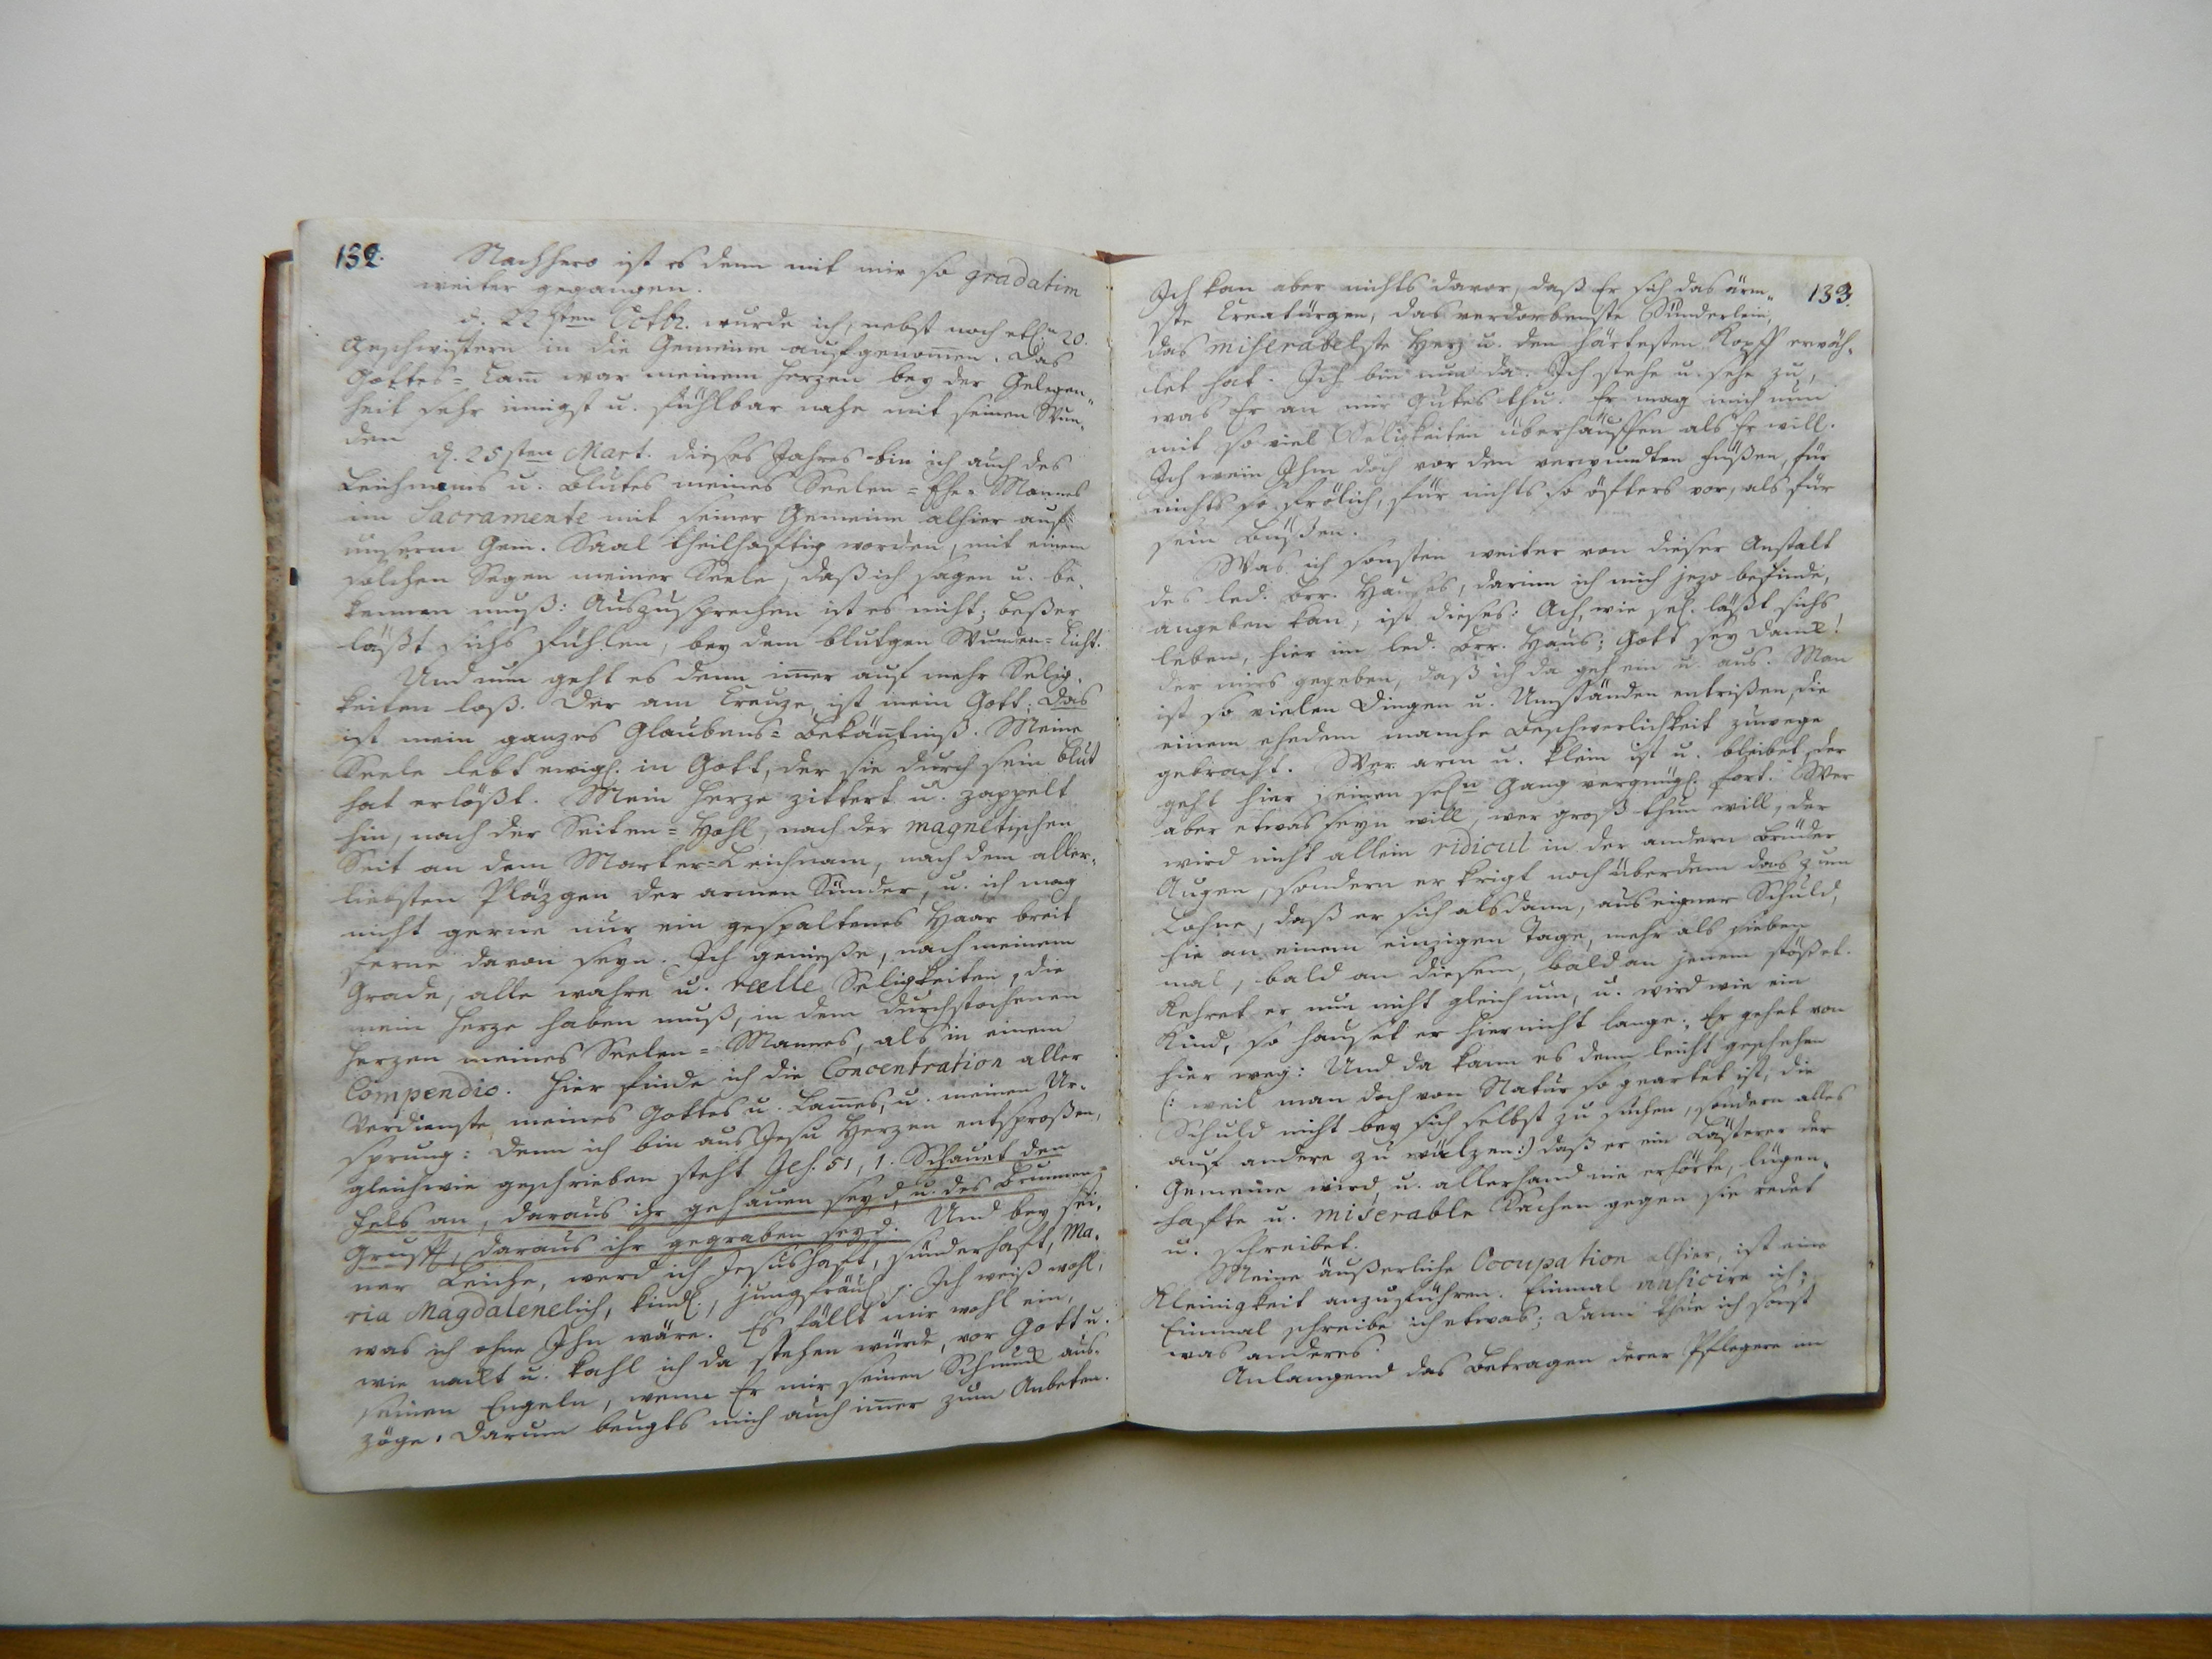 132.
Nachhero ist es denn mit mir so gradatim
weiter gegangen.
d. 22sten Octbr. wurde ich, nebst noch etl. 20.
Geschwistern in die Gemeine aufgenom̅en. Das
Gottes=Lam̅ war meinem Herzen bey der Gelegen„
heit sehr innigst u. fühlbar nahe mit seinen Wun„
den
d. 25sten Mart. dieses Jahres bin ich auch des
Leichnams u. Blutes meines Seelen=Ehe=Mannes
im Sacramente mit seiner Gemeine alhier auf
unserm Gem. Saal theilhafftig worden, mit einem
solchen Segen meiner Seele, daß ich sagen u. be„
kennen muß: Auszusprechen ist es nicht; beßer
läßt sichs fühlen, bey dem blutgen Wunden=Licht.
Und nun geht es denn im̅er auf mehr Selig„
keiten loß. Der am Creuze, ist mein Gott: Das
ist mein ganzes Glaubens=Bekän̅tniß. Meine
Seele lebt ewigl. in Gott, der sie durch sein Blut
hat erlößt. Mein Herze zittert u. zappelt
hin, nach der Seiten=Höhl, nach der magnetischen
Seit an dem Marter=Leichnam, nach dem aller„
liebsten Pläzgen der armen Sünder, u. ich mag
nicht gerne nur ein gespaltenes Haar breit
ferne davon seyn. Ich genieße, nach meinem
Grade, alle wahre u. reelle Seligkeiten, die
mein Herze haben muß, in dem durchstochenen
Herzen meines Seelen=Mannes, als in einem
Compendio. Hier finde ich die Concentration aller
Verdienste meines Gottes u. Lam̅es, u. meinen Ur„
sprung: Denn ich bin aus Jesu Herzen entsproßen,
gleichwie geschrieben steht Jes. 51, 1. Schauet den
Fels an, daraus ihr gehauen seyd, u. des Brunnen
Grufft, daraus ihr gegraben seyd. Und bey sei„
ner Leiche, werd ich Jesushaft, sünderhaft, Ma„
ria Magdalenelich, kindl., jungfräul. Ich weiß wohl,
was ich ohne Ihn wäre. Es fällt mir wohl ein,
wie nackt u. kahl ich da stehen würde, vor Gott u.
seinen Engeln, wenn Er mir seinen Schmuck aus„
zöge. Darum beugts mich auch im̅er zum Anbeten.
133.
Ich kan aber nichts davor, daß Er sich das ärm„
ste Creatürgen, das verdorbenste Sünderlein,
das miserabelste Herz u. den härtesten Kopff erwäh„
let hat. Ich bin nun da. Ich stehe u. sehe zu,
was Er an mir Gutes thu. Er mag mich nun
mit so viel Seligkeiten überhäuffen als Er will.
Ich wein Ihm doch vor den verwundten Füßen, für
nichts so frölich, für nichts so öfters vor, als für
sein Büßen.
Was ich sonsten weiter von dieser Anstalt
des led. Brr. Hauses, darinn ich mich jezo befinde,
angeben kan, ist dieses: Ach, wie sel. läßt sichs
leben, hier im led. Brr. Haus; Gott sey Dank!
der mirs gegeben, daß ich da geh ein u. aus. Man
ist so vielen Dingen u. Umständen entrißen, die
einem ehedem manche Beschwerlichkeit zuwege
gebracht. Wer arm u. klein ist u. bleibet, der
geht hier seinen sel.n Gang vergnügl. fort. Wer
aber etwas seyn will, wer groß thun will, der
wird nicht allein ridicul in der andern Brüder
Augen, sondern er krigt noch überdem das zum
Lohne, daß er sich alsdann, aus eigner Schuld,
hie an einem einzigen Tage, mehr als sieben
mal, bald an diesem, bald an jenem stößet.
Kehret er nun nicht gleich um, u. wird wie ein
Kind, so hauset er hier nicht lange. Er gehet von
hier weg: Und da kann es denn leicht geschehen
(: weil man doch von Natur so geartet ist, die
Schuld nicht bey sich selbst zu suchen, sondern alles
auf andere zu wälzen:) daß er ein Lästerer der
Gemeine wird, u. allerhand nie erhörte, lügen„
hafte u. miserable Sachen gegen sie redet
u. schreibet.
Meine äußerliche Occupation alhier, ist eine
Kleinigkeit anzuführen. Einmal musicire ich;
Einmal schreibe ich etwas; dann thue ich sonst
was anderes.
Anlangend das Betragen derer Pflegere im